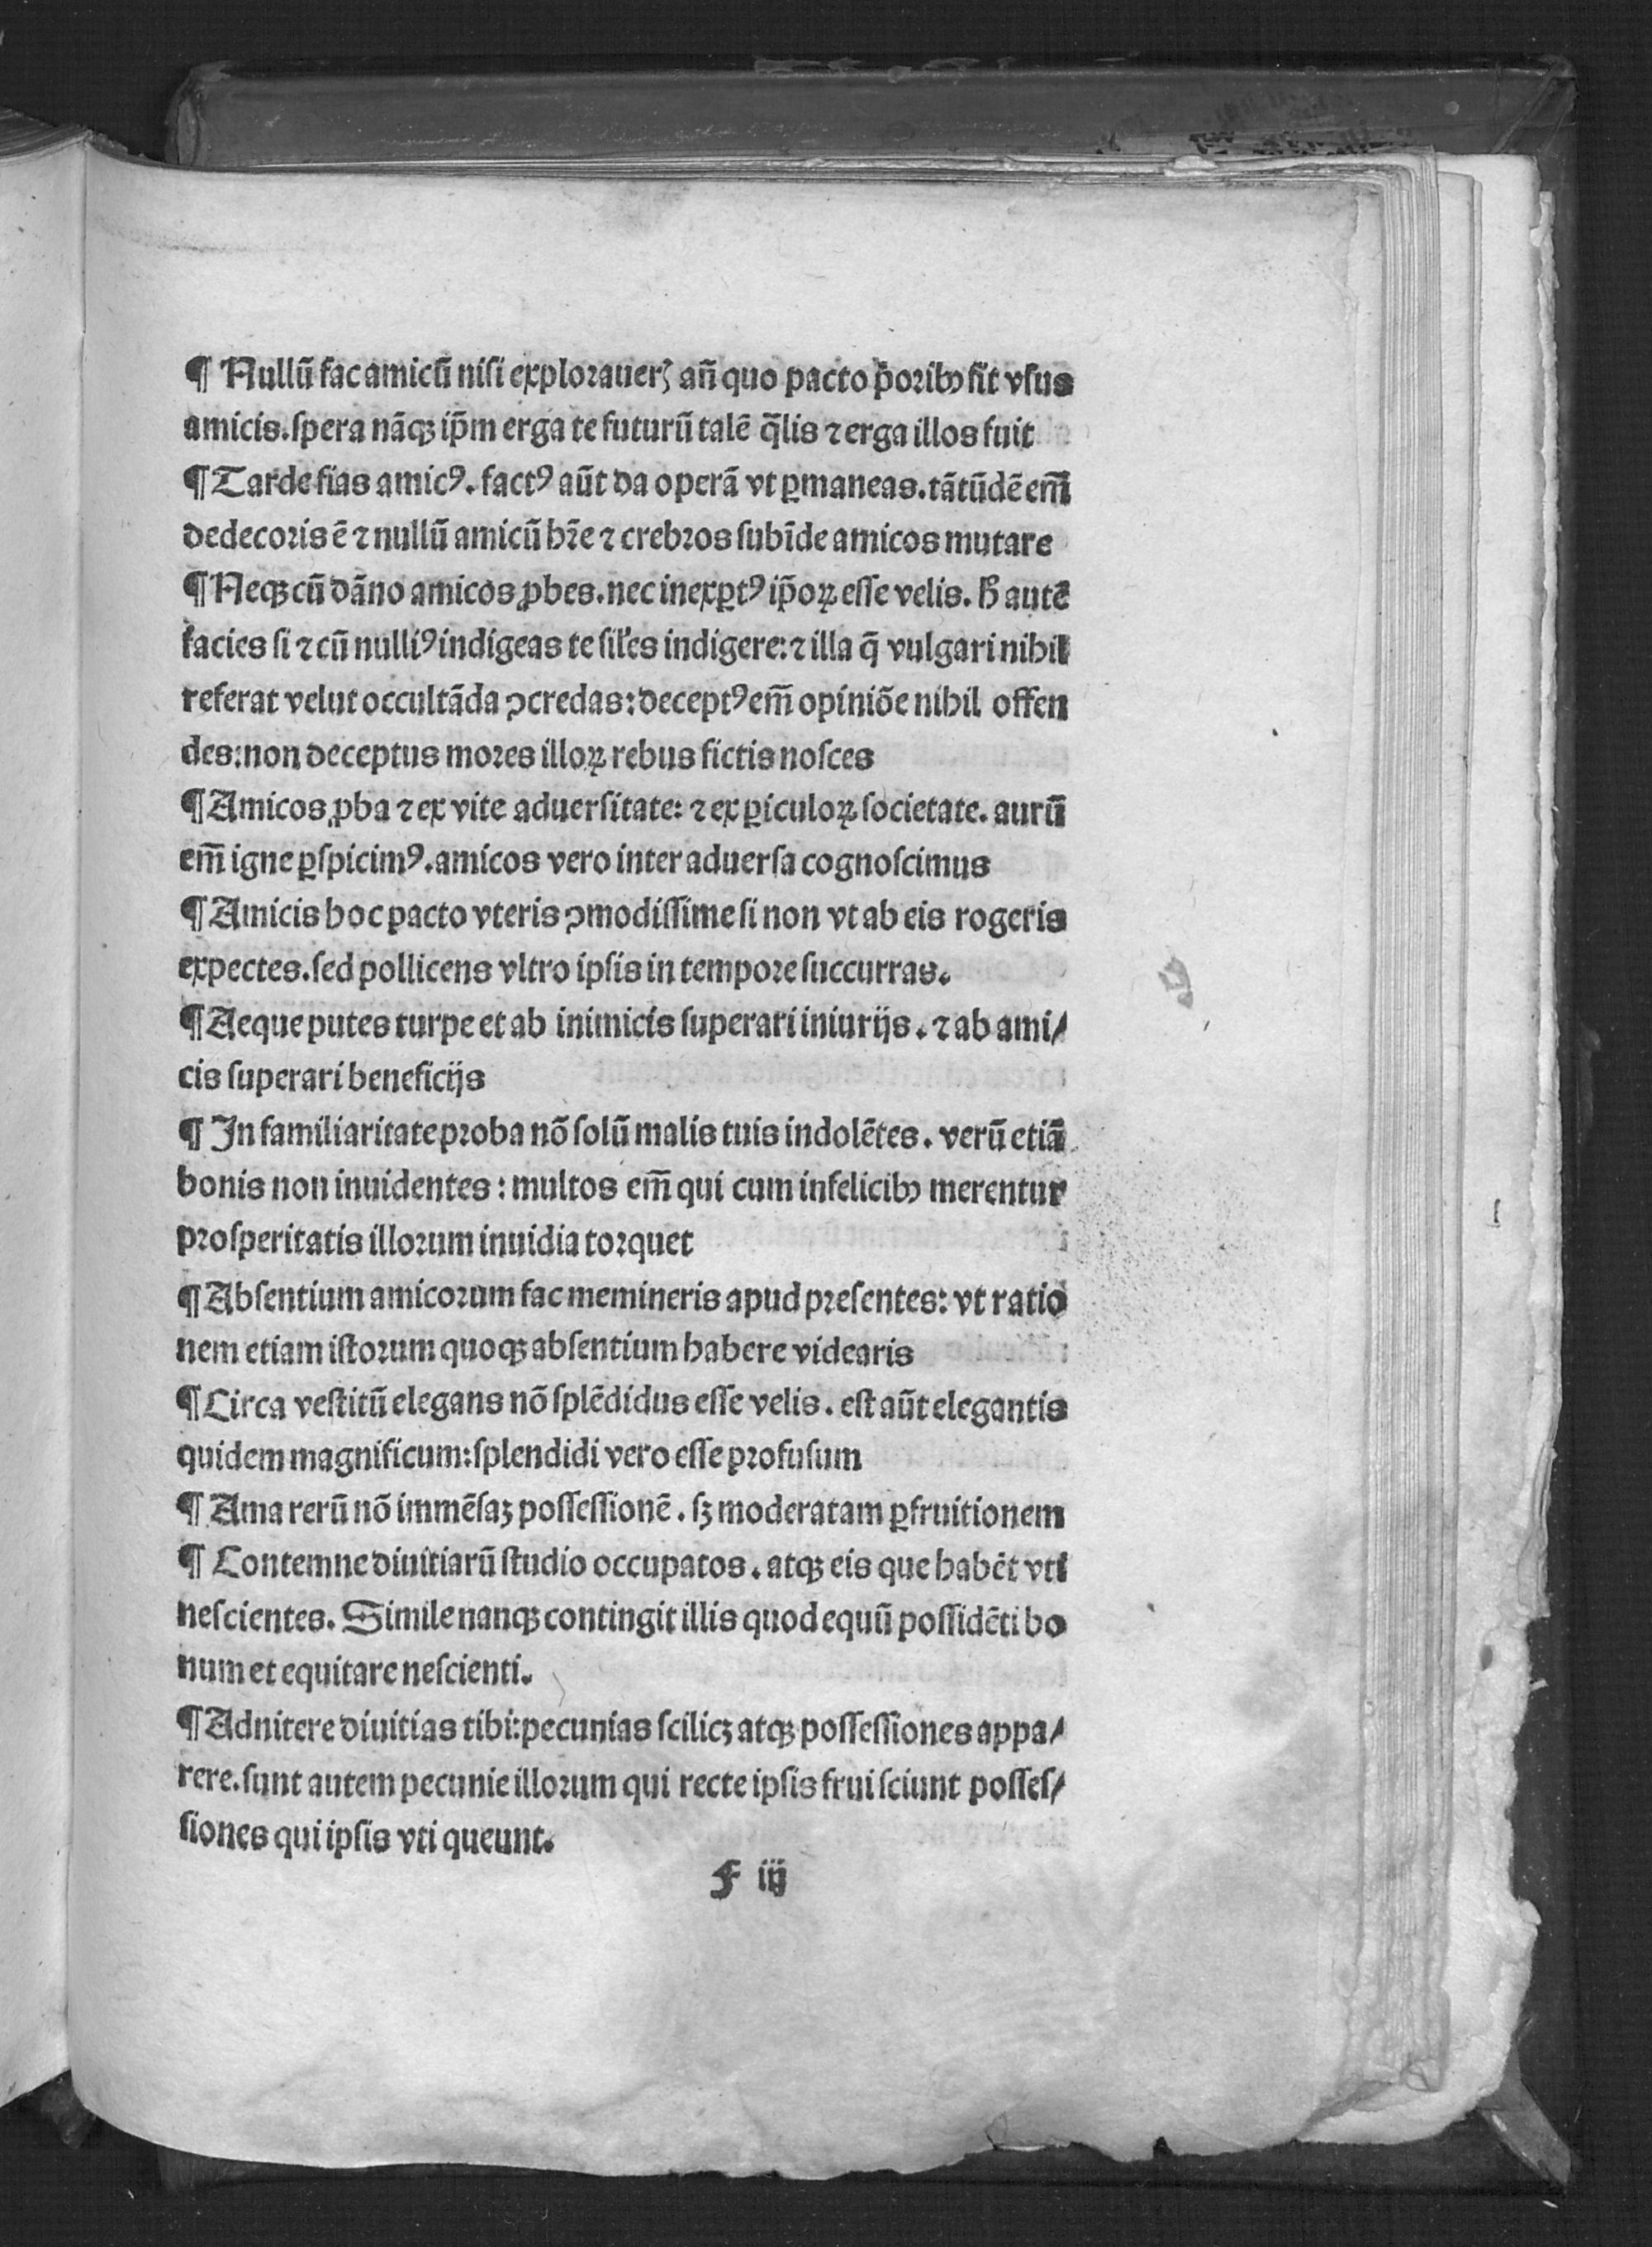 ¶ Nullū fac amicū nisi explorauerꝫ an̄ quo pacto p̄oribꝰ sit vsus
amicis. spera nāqꝫ ip̄m erga te futurū talē q̄lis ⁊ erga illos fuit
¶ Tarde fias amicꝰ. factꝰ aūt da operā vt ꝑmaneas. tātūdē em̄
dedecoris ē ⁊ nullū amicū hr̄e ⁊ crebros subīde amicos mutare
¶ Neqꝫ cū dāno amicos ꝓbes. nec inexꝑtꝰ ip̄oꝝ esse velis. H̄ autē
facies si ⁊ cū nulliꝰ indigeas te sil'es indigere: ⁊ illa q̄ vulgari nihil
referat velut occultāda ꝯcredas: deceptꝰ em̄ opiniōe nihil offen
des: non deceptus mores illoꝝ rebus fictis nosces
¶ Amicos ꝓba ⁊ ex vite aduersitate: ⁊ ex ꝑiculoꝝ societate. aurū
em̄ igne ꝑspicimꝰ. amicos vero inter aduersa cognoscimus
¶ Amicis hoc pacto vteris ꝯmodissime si non vt ab eis rogeris
expectes. sed pollicens vltro ipsis in tempore succurras.
¶ Aeque putes turpe et ab inimicis superari iniurijs. ⁊ ab ami/
cis superari beneficijs
¶ In familiaritate proba nō solū malis tuis indolētes. verū etiā
bonis non inuidentes: multos em̄ qui cum infelicibꝰ merentur
prosperitatis illorum inuidia torquet
¶ Absentium amicorum fac memineris apud presentes: vt ratio
nem etiam istorum quoqꝫ absentium habere videaris
¶ Circa vestitū elegans nō splēdidus esse velis. est aūt elegantis
quidem magnificum: splendidi vero esse profusum
¶ Ama rerū nō immēsaꝫ possessionē. sꝫ moderatam ꝑfruitionem
¶ Contemne diuitiarū studio occupatos. atqꝫ eis que habēt vti
nescientes. Simile nanqꝫ contingit illis quod equū possidēti bo
num et equitare nescienti.
¶ Adnitere diuitias tibi: pecunias scilicꝫ atqꝫ possessiones appa/
rere. sunt autem pecunie illorum qui recte ipsis frui sciunt posses/
siones qui ipsis vti queunt.
F iij